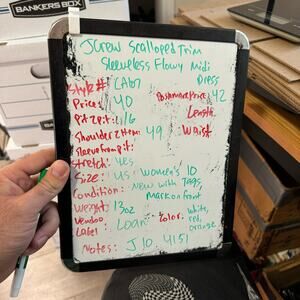 BANKERS BOX
JCrew Scalloped Trim
Sleeveless Flowy Midi
Dress
Style #: CA67
Price: 40
Poshmark Price: 42
Pit 2 Pit: 16
Length:
Shoulder 2 Hem: 49
Waist
Sleeve from pit:
Stretch: yes
Size: US Women's 10
Condition: New with Tags,
Mark on Front
Weight: 13oz
Color: White,
red,
orange
Vendoo
Label
Loan
Notes: J10, 4151